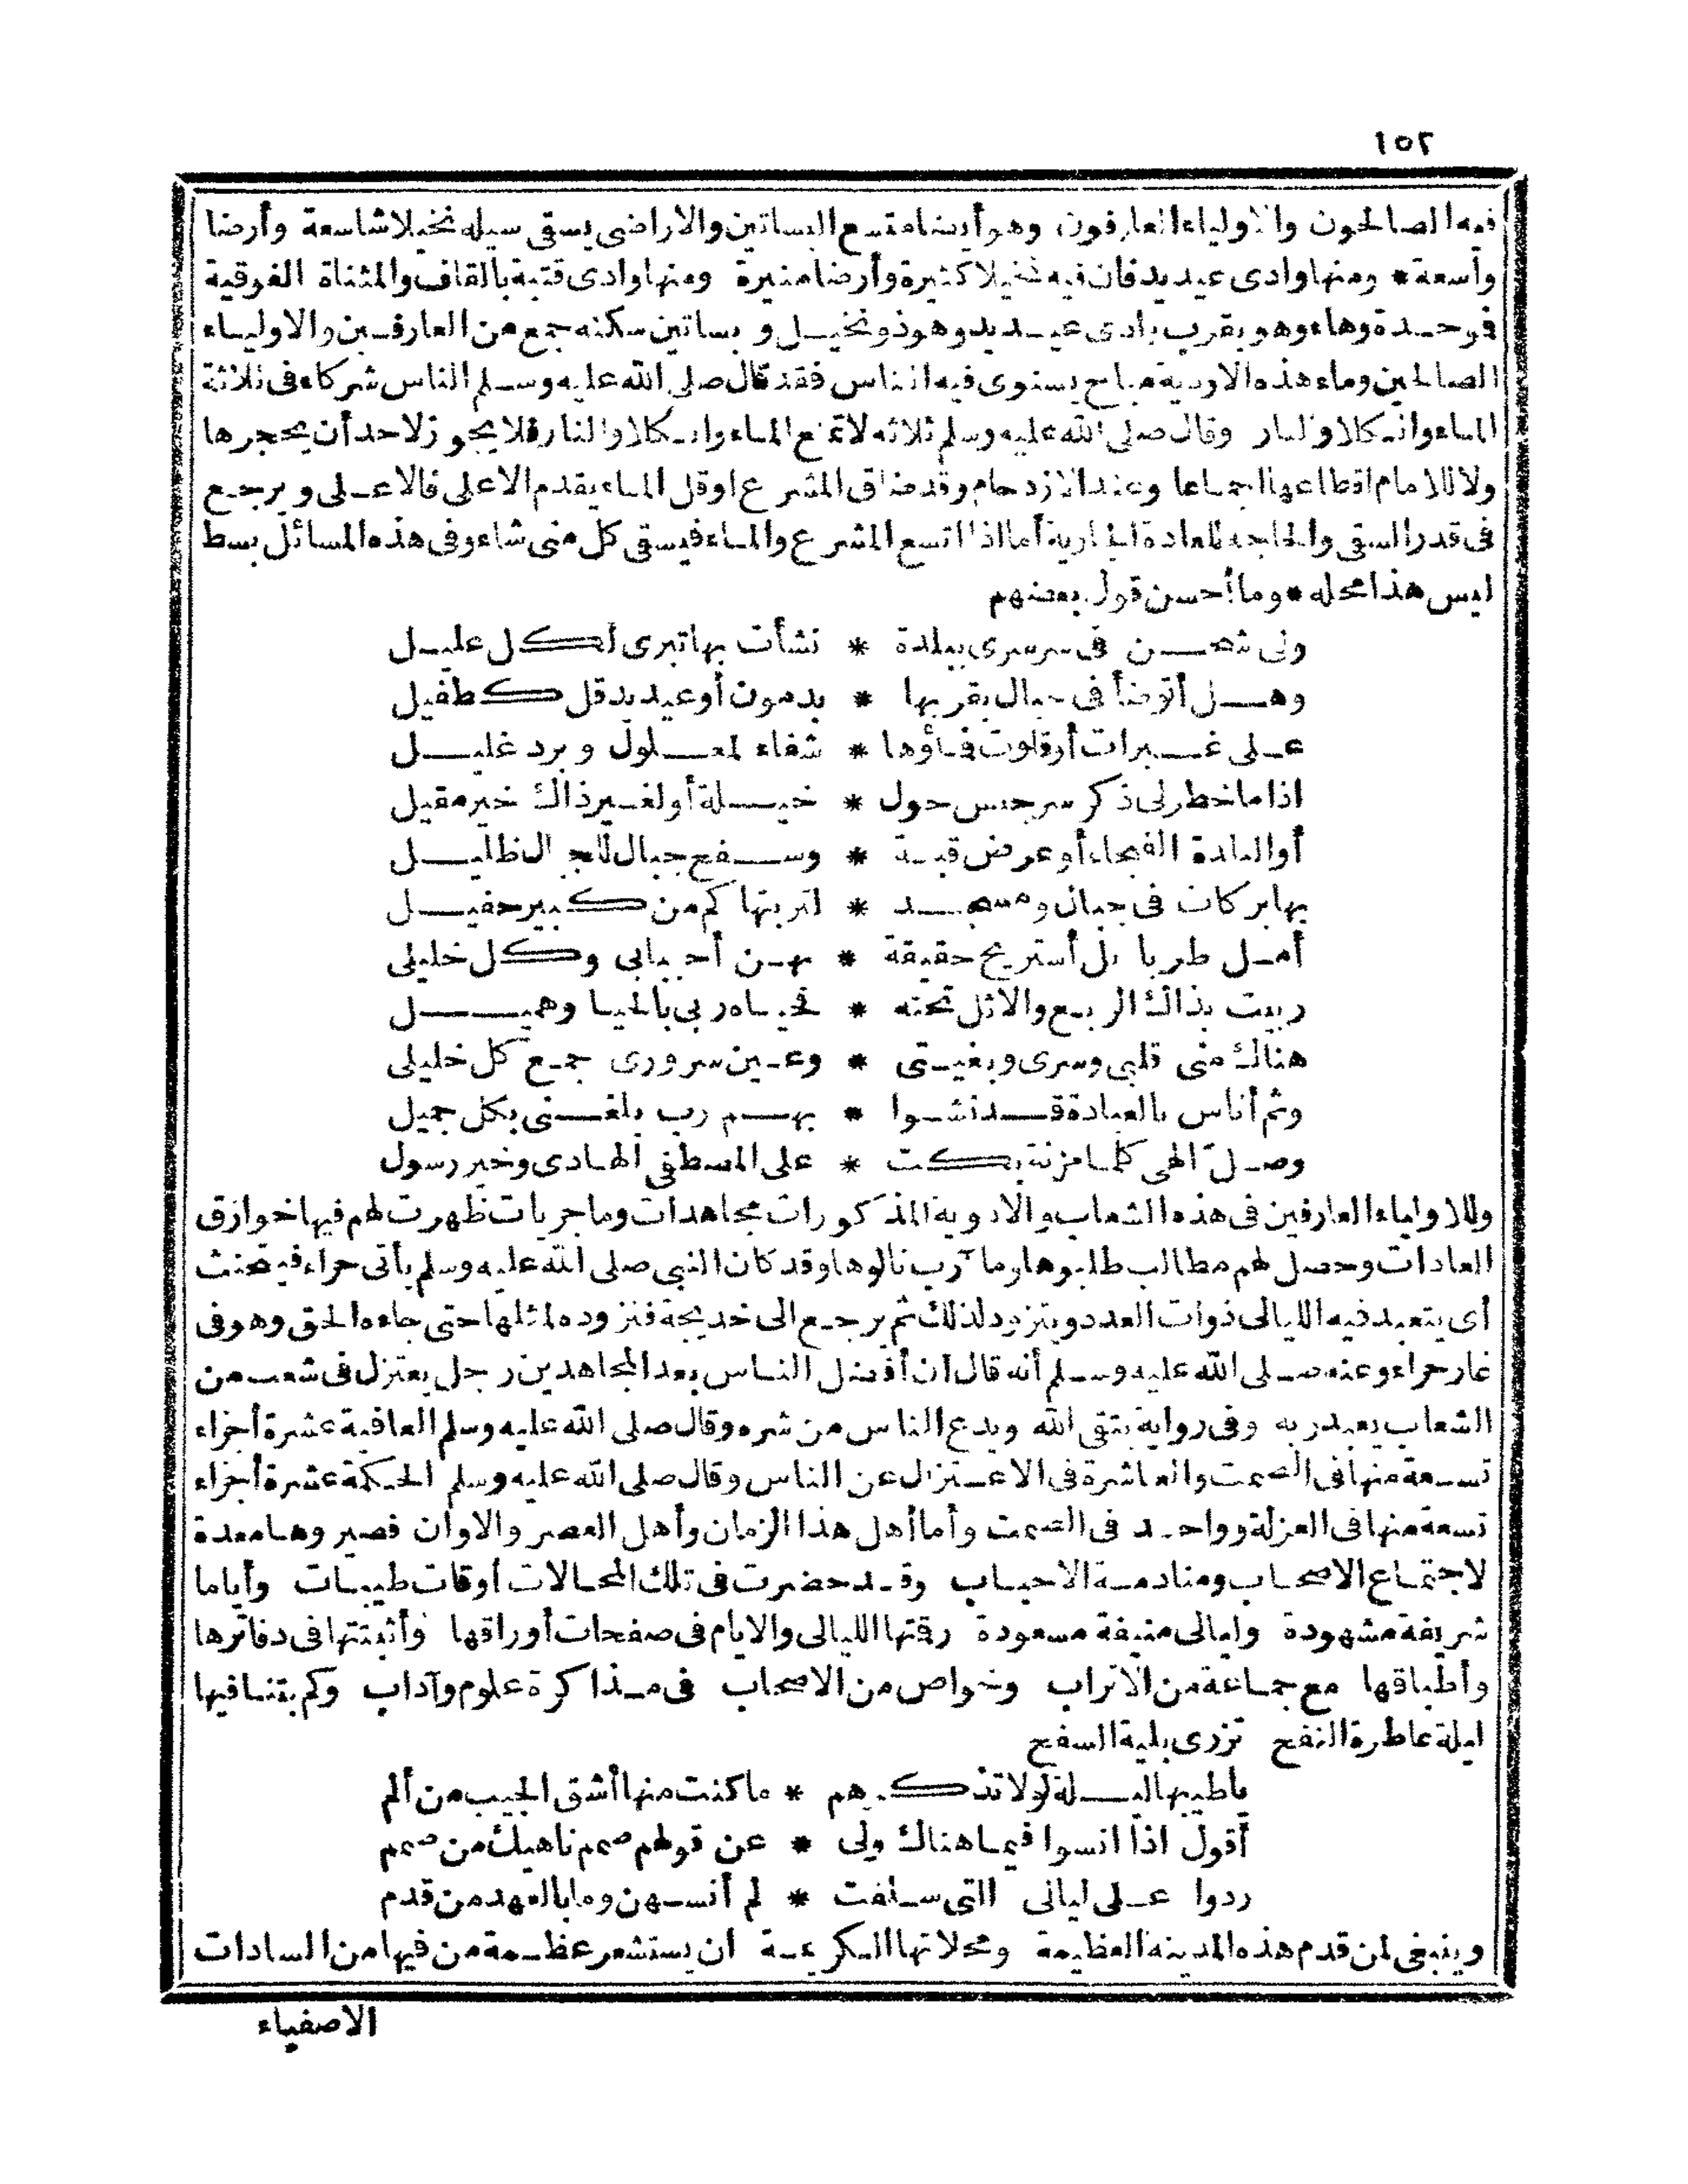 ١٥٢
فيه الصالحون والاولياء العارفون وهو أيضا متسع البساتين والاراضى يسقى سيله نخيلا شاسعة وأرضا
واسعة * ومنها وادى عيديد فان فيه نخيلا كثيرة وأرضا منيرة ومنها وادى قتبة بالقاف والمثناة الفوقية
فوحدة وهاء وهو بقرب وادى عيديد وهو ذو نخيل و بساتين سكنه جمع من العارفين والاولياء
الصالحين وماء هذه الاودية مباح يستوى فيه الناس فقد قال صلى الله عليه وسلم الناس شركاء فى ثلاثة
الماء والكلا والنار وقال صلى الله عليه وسلم ثلاثه لا تمنع الماء والكلا والنار فلا يجوز لاحد أن يحجرها
ولا للامام اقطاعها اجماعا وعند الازدحام وقد ضاق المشرع او قل الماء يقدم الاعلى فالاعلى و يرجع
فى قدر السقى والحاجه للعادة الجارية أما اذا اتسع المشرع والماء فيسقى كل متى شاء وفى هذه المسائل بسط
ليس هذا محله * وما أحسن قول بعضهم
ولى شجن فى سرسرى ببلدة * نشأت بها تبرى لكل عليل
وهل أتوضأ فى جبال بقربها * بدمون أو عيديد قل كطفيل
على غبرات أوقلوت فاؤها * شفاء لمعلول و برد غليل
اذا ما خطر لى ذكر سر جيس حول * خيلة أو لغير ذاك خير مقيل
أو البلدة الفيحاء أو عرض قبة * وسفح جبال للجبال ظليل
بها بركات فى جبان ومسجد * لتربتها كم من كبير حفيل
أمل طربا بل أستريح حقيقة * بهن أحبابى وكل خليلى
ربيت بذاك الربع والاثل تحته * فحياه ربى بالحيا وهميل
هنالك منى قلبى وسرى وبغيتى * وعين سرورى جمع كل خليلى
وثم أناس بالعبادة قد نشوا * بهم رب بلغنى بكل جميل
وصل الهى كلما مزنة بكت * على المصطفى الهادى وخير رسول
وللاولياء العارفين فى هذه الشعاب والاودية المذكورات مجاهدات وماجريات ظهرت لهم فيها خوارق
العادات وحصل لهم مطالب طلبوها وما آرب نالوها وقد كان النبي صلى الله عليه وسلم يأتى حراء فيتحنث
أى يتعبد فيه الليالى ذوات العدد ويتزود لذلك ثم يرجع الى خديجة فتزوده لمثلها حتى جاءه الحق وهو فى
غار حراء وعنه صلى الله عليه وسلم أنه قال ان أفضل الناس بعد المجاهدين رجل يعتزل فى شعب من
الشعاب يعبد ربه وفى رواية يتقى الله ويدع الناس من شره وقال صلى الله عليه وسلم العافية عشرة أجزاء
تسعة منها فى الصمت والعاشرة فى الاعتزال عن الناس وقال صلى الله عليه وسلم الحكمة عشرة أجزاء
تسعة منها فى العزلة وواحد فى الصمت وأما أهل هذا الزمان وأهل العصر والاوان فصيروها معدة
لاجتماع الاصحاب ومنادمة الاحباب وقد حضرت فى تلك المحالات أوقات طيبات وأياما
شريفة مشهودة وليالى منيفة مسعودة رقتها الليالى والايام فى صفحات أوراقها وأثبتتها فى دفاترها
وأطباقها مع جماعة من الاتراب وخواص من الاصحاب فى مذاكرة علوم وآداب وكم بتنا فيها
ليلة عاطرة النفح تزرى بلية السفح
ياطيبها ليلة لولا تذكرهم * ما كنت منها أشق الجيب من ألم
أقول اذا انسوا فيما هناك ولى * عن قولهم صمم ناهيك من صمم
ردوا على ليالى التى سلفت * لم أنسهن وما بالعهد من قدم
وينبغى لمن قدم هذه المدينة العظيمة ومحلاتها الكريمة ان يستشعر عظمة من فيها من السادات
الاصفياء